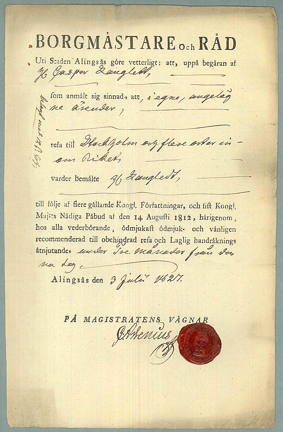 BORGMÄSTARE OCH RÅD
Uti Staden Alingsås göre vetterligt: att, uppå begäran af
Hr Casper
som anmält sig sinnad, att, i egne, angeläg
ne ärender,
resa till Stockholm och flere orter in-
om Riket,
varder bemälte Hr
till följe af flere gällande Kongl. Författningar, och sist Kongl.
Majts Nådiga Påbud af den 14 Augusti 1812, härigenom,
hos alla vederbörande, ödmjukast ödmjuk- och vänligen
recommenderad till obehindrad resa och Laglig handräknings
åtnjutande; under Tre månader från den-
na dag.
Alingsås den 3 Julii 1827.
PÅ MAGISTRATENS VÄGNAR